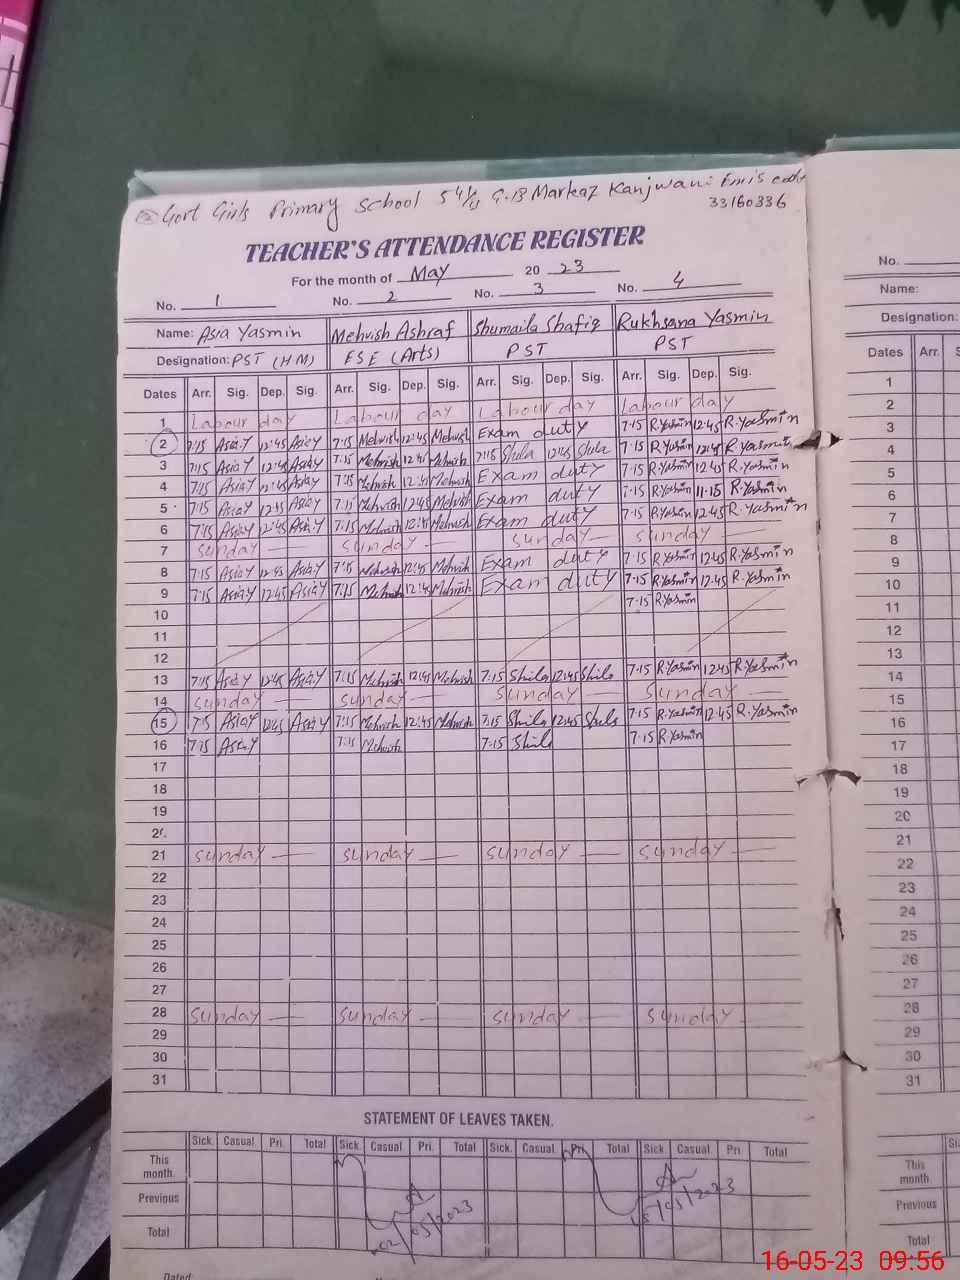 Govt Girls Primary School 54 G.B Markaz Kanjwani Emis code
33160336
TEACHER'S ATTENDANCE REGISTER
For the month of May 20 23
No. 1 No. 2 No. 3 No. 4
Name: Asia Yasmin Mehvish Ashraf Shumaila Shafiq Rukhsana Yasmin
Designation: PST (HM) ESE (Arts) PST PST
Dates Arr. Sig. Dep. Sig. Arr. Sig. Dep. Sig. Arr. Sig. Dep. Sig. Arr. Sig. Dep. Sig.
1 Labour day Labour day Labour day Labour day
2 7:15 Asia.Y 12:45 Asia.Y 7:15 Mehvish 12:45 Mehvish Exam duty 7:15 R.Yasmin 12:45 R.Yasmin
3 7:15 Asia.Y 12:45 Asia.Y 7:15 Mehvish 12:45 Mehvish 7:15 12:45 7:15 R.Yasmin 12:45 R.Yasmin
4 7:15 Asia.Y 12:45 Asia.Y 7:15 Mehvish 12:45 Mehvish Exam duty 7:15 R.Yasmin 12:45 R.Yasmin
5 7:15 Asia.Y 12:45 Asia.Y 7:15 Mehvish 12:45 Mehvish Exam duty 7:15 R.Yasmin 11:15 R.Yasmin
6 7:15 Asia.Y 12:45 Asia.Y 7:15 Mehvish 12:45 Mehvish Exam duty 7:15 R.Yasmin 12:45 R.Yasmin
7 Sunday Sunday Sunday Sunday
8 7:15 Asia.Y 12:45 Asia.Y 7:15 Mehvish 12:45 Mehvish Exam duty 7:15 R.Yasmin 12:45 R.Yasmin
9 7:15 Asia.Y 12:45 Asia.Y 7:15 Mehvish 12:45 Mehvish Exam duty 7:15 R.Yasmin 12:45 R.Yasmin
10 7:15 R.Yasmin
11
12
13 7:15 Asia.Y 12:45 Asia.Y 7:15 Mehvish 12:45 Mehvish 7:15 Shila 12:45 Shila 7:15 R.Yasmin 12:45 R.Yasmin
14 Sunday Sunday Sunday Sunday
15 7:15 Asia.Y 12:45 Asia.Y 7:15 Mehvish 12:45 Mehvish 7:15 Shila 12:45 Shila 7:15 R.Yasmin 12:45 R.Yasmin
16 7:15 Asia.Y 7:15 Mehvish 7:15 Shila 7:15 R.Yasmin
17
18
19
21 Sunday Sunday Sunday Sunday
22
23
24
25
26
27
28 Sunday Sunday Sunday Sunday
29
30
31
STATEMENT OF LEAVES TAKEN.
Sick. Casual. Pri. Total Sick. Casual. Pri. Total Sick. Casual. Pri. Total Sick. Casual. Pri. Total
This month.
Previous
Total
02/05/2023 15/05/2023
Dated:
No.
Name:
Designation:
Dates Arr.
1
2
3
4
5
6
7
8
9
10
11
12
13
14
15
16
17
18
19
20
21
22
23
24
25
26
27
28
29
30
31
This month
Previous
Total
16-05-23 09:56